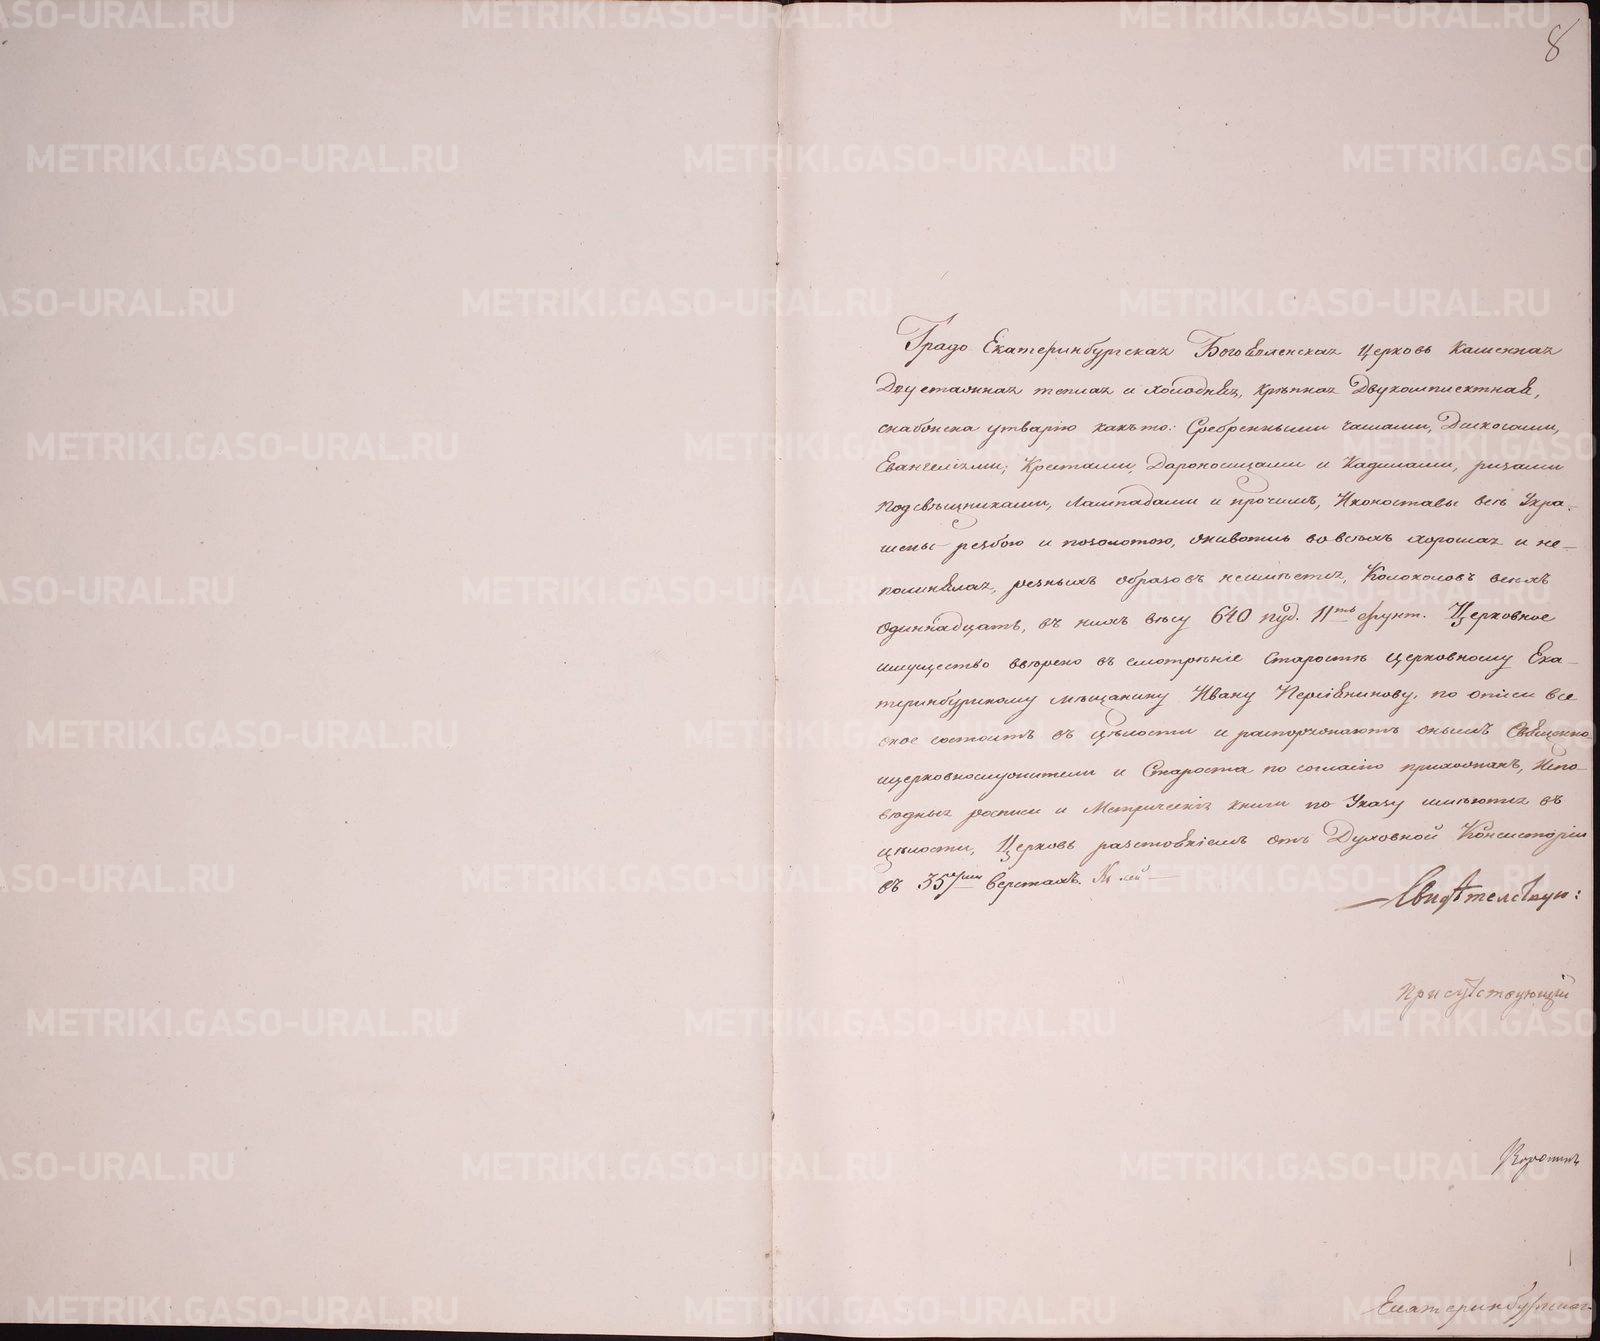 8
Градо Екатеринбургская Богоявленская Церковь Каменная
Двуетажная теплая и холодная, крѣпкая Двукомплектная,
снабжена утварію какъ то: Сребренными чашами, Дискосами,
Евангеліями, Крестами, Дароносицами и Кадилами, ризами
подсвѣщниками, Лампадами и прочимъ, Иконостасы всѣ Укра-
шены резбою и позолотою, живопись во всѣхъ хороша и не-
полиняла, резныхъ образовъ неимѣется, Колоколовъ всѣхъ
одиннадцать, въ нихъ вѣсу 640 пуд. 11ть фунт. Церковное
имущество ввѣрено въ смотрѣніе Старостѣ церковному Ека-
теринбургскому мѣщанину Ивану по описи все
оное состоитъ въ цѣлости и распоряжаютъ онымъ Священно-
ицерковнослужители и Староста по согласію прихожанъ, Испо-
вѣдныя росписи и Метрическія книги по Указу имѣются въ
цѣлости, Церковь разстояніемъ отъ Духовной Консисторіи
въ 35 верстахъ.
Свидѣтелствую:
Присутствующій
Екатеринбургская
METRIKI.GASO-URAL.RU